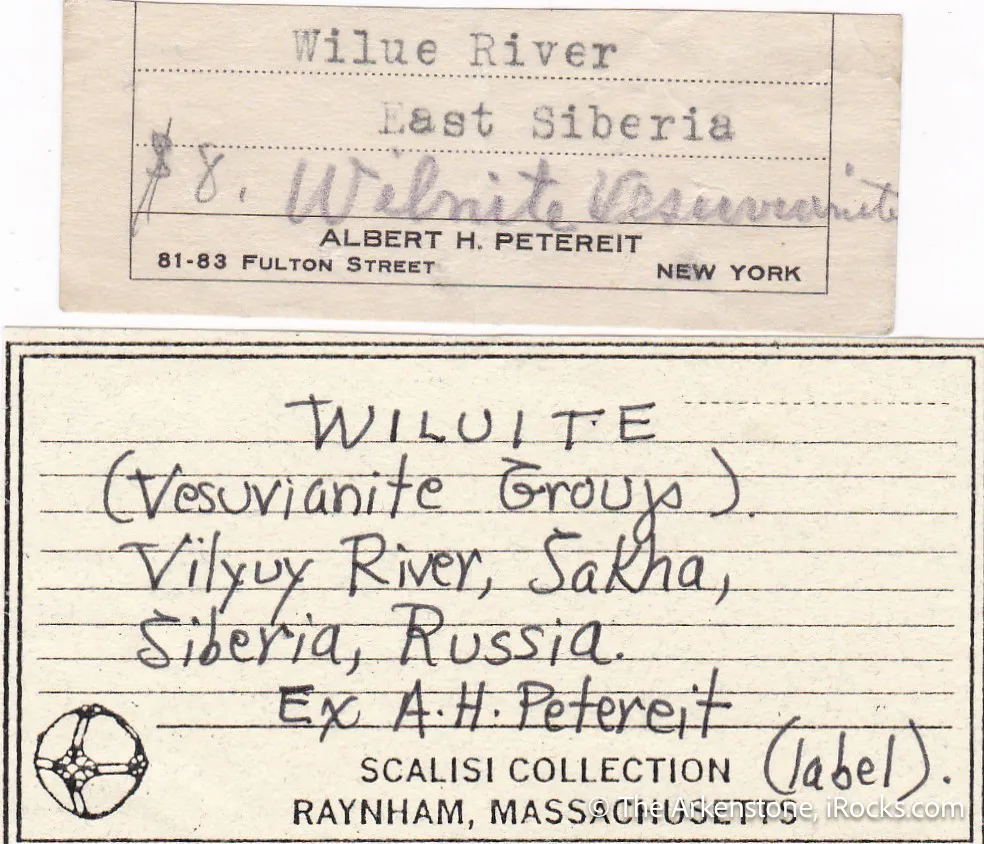 Wilue River
East Siberia
$8. Wilnite Vesuvianite
ALBERT H. PETEREIT
81-83 FULTON STREET NEW YORK
WILUITE
(Vesuvianite Group).
Vilyuy River, Sakha,
Siberia, Russia.
Ex A.H. Petereit
(label).
SCALISI COLLECTION
RAYNHAM, MASSACHUSETTS
© The Arkenstone, iRocks.com